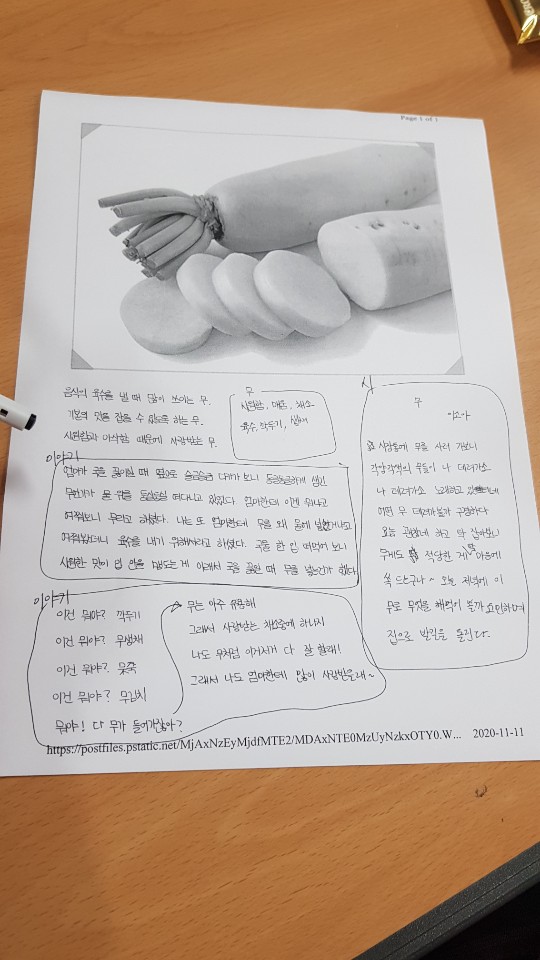 Page 1 of 1
음식의 육수를 낼 때 많이 쓰이는 무.
기본의 맛을 잡을 수 있도록 하는 무.
시원함과 아삭함 때문에 사랑받는 무.
무
시원함, 채소
육수, 깍두기, 생채
이야기
엄마가 국을 끓이실 때 옆으로 슬금슬금 다가가 보니 동글동글하게 생긴
무언가가 물 위를 둥둥 떠다니고 있었다. 엄마한테 이게 뭐냐고
여쭤보니 무라고 하셨다. 나는 또 엄마한테 무를 왜 물에 넣었냐고
여쭤봤더니 육수를 내기 위해서라고 하셨다. 국을 한 입 떠먹어 보니
시원한 맛이 입 안을 감도는 게 이래서 국을 끓일 때 무를 넣는건가 했다.
이야기
이건 뭐야? 깍두기
이건 뭐야? 무생채
이건 뭐야? 뭇국
이건 뭐야? 무김치
뭐야! 다 무가 들어가잖아?
무는 아주 유용해
그래서 사랑받는 채소중에 하나지
나도 무처럼 이거저거 다 잘 할래!
그래서 나도 엄마한테 많이 사랑받을래~
시
무
이소아
시장통에 무를 사러 가보니
각양각색의 무들이 나 데려가소
나 데려가소 노래하고 있는데
어떤 무 데려가볼까 구경하다
오늘 괜찮네 하고 딱 잡아보니
무게도 적당한 게 내 마음에
쏙 드는구나~ 오늘 저녁에 이
무로 무엇을 해먹어 볼까 고민하며
집으로 발길을 돌린다.
https://postfiles.pstatic.net/MjAxNzEyMjdfMTE2/MDAxNTE0MzUyNzkxOTY0.W... 2020-11-11